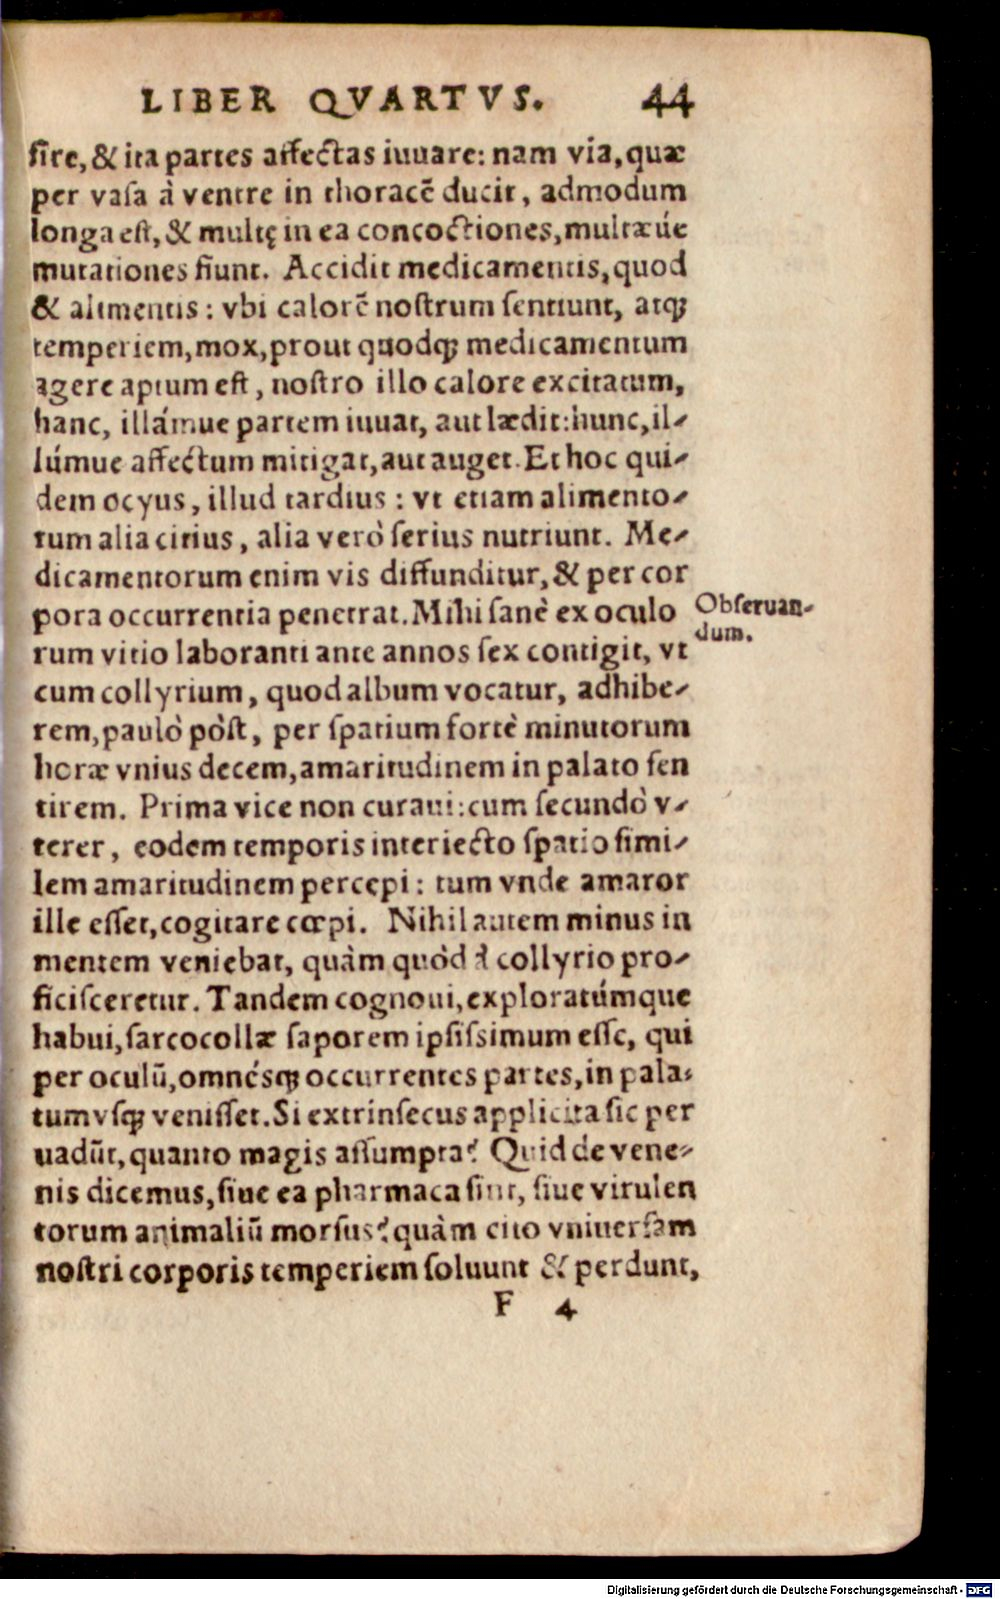 LIBER QVARTVS. 44
ſire, & ita partes affectas iuuare: nam via, quæ
per vaſa à ventre in thoracē ducit, admodum
longa eſt, & multę in ea concoctiones, multæúe
mutationes fiunt. Accidit medicamentis, quod
& alimentis: vbi calorē noſtrum ſentiunt, atq;
temperiem, mox, prout quodq; medicamentum
agere aptum eſt, noſtro illo calore excitatum,
hanc, illámue partem iuuat, aut lædit: hunc, il-
lúmue affectum mitigat, aut auget. Et hoc qui-
dem ocyus, illud tardius: vt etiam alimento-
rum alia citius, alia verò ſerius nutriunt. Me-
dicamentorum enim vis diffunditur, & per cor
pora occurrentia penetrat. Mihi ſanè ex oculo
Obſeruan-
dum.
rum vitio laboranti ante annos ſex contigit, vt
cum collyrium, quod album vocatur, adhibe-
rem, paulò pòſt, per ſpatium fortè minutorum
horæ vnius decem, amaritudinem in palato ſen
tirem. Prima vice non curaui: cum ſecundò v-
terer, eodem temporis interiecto ſpatio ſimi-
lem amaritudinem percępi: tum vnde amaror
ille eſſet, cogitare cœpi. Nihil autem minus in
mentem veniebat, quàm quòd à collyrio pro-
ficiſceretur. Tandem cognoui, exploratúmque
habui, ſarcocollæ ſaporem ipſiſsimum eſſe, qui
per oculū, omnésq; occurrentes partes, in pala-
tum vſq; veniſſet. Si extrinſecus applicita ſic per
uadūt, quanto magis aſſumpta? Quid de vene-
nis dicemus, ſiue ea pharmaca ſint, ſiue virulen
torum animaliū morſus? quàm cito vniuerſam
noſtri corporis temperiem ſoluunt & perdunt,
F 4
Digitalisierung gefördert durch die Deutsche Forschungsgemeinschaft - DFG